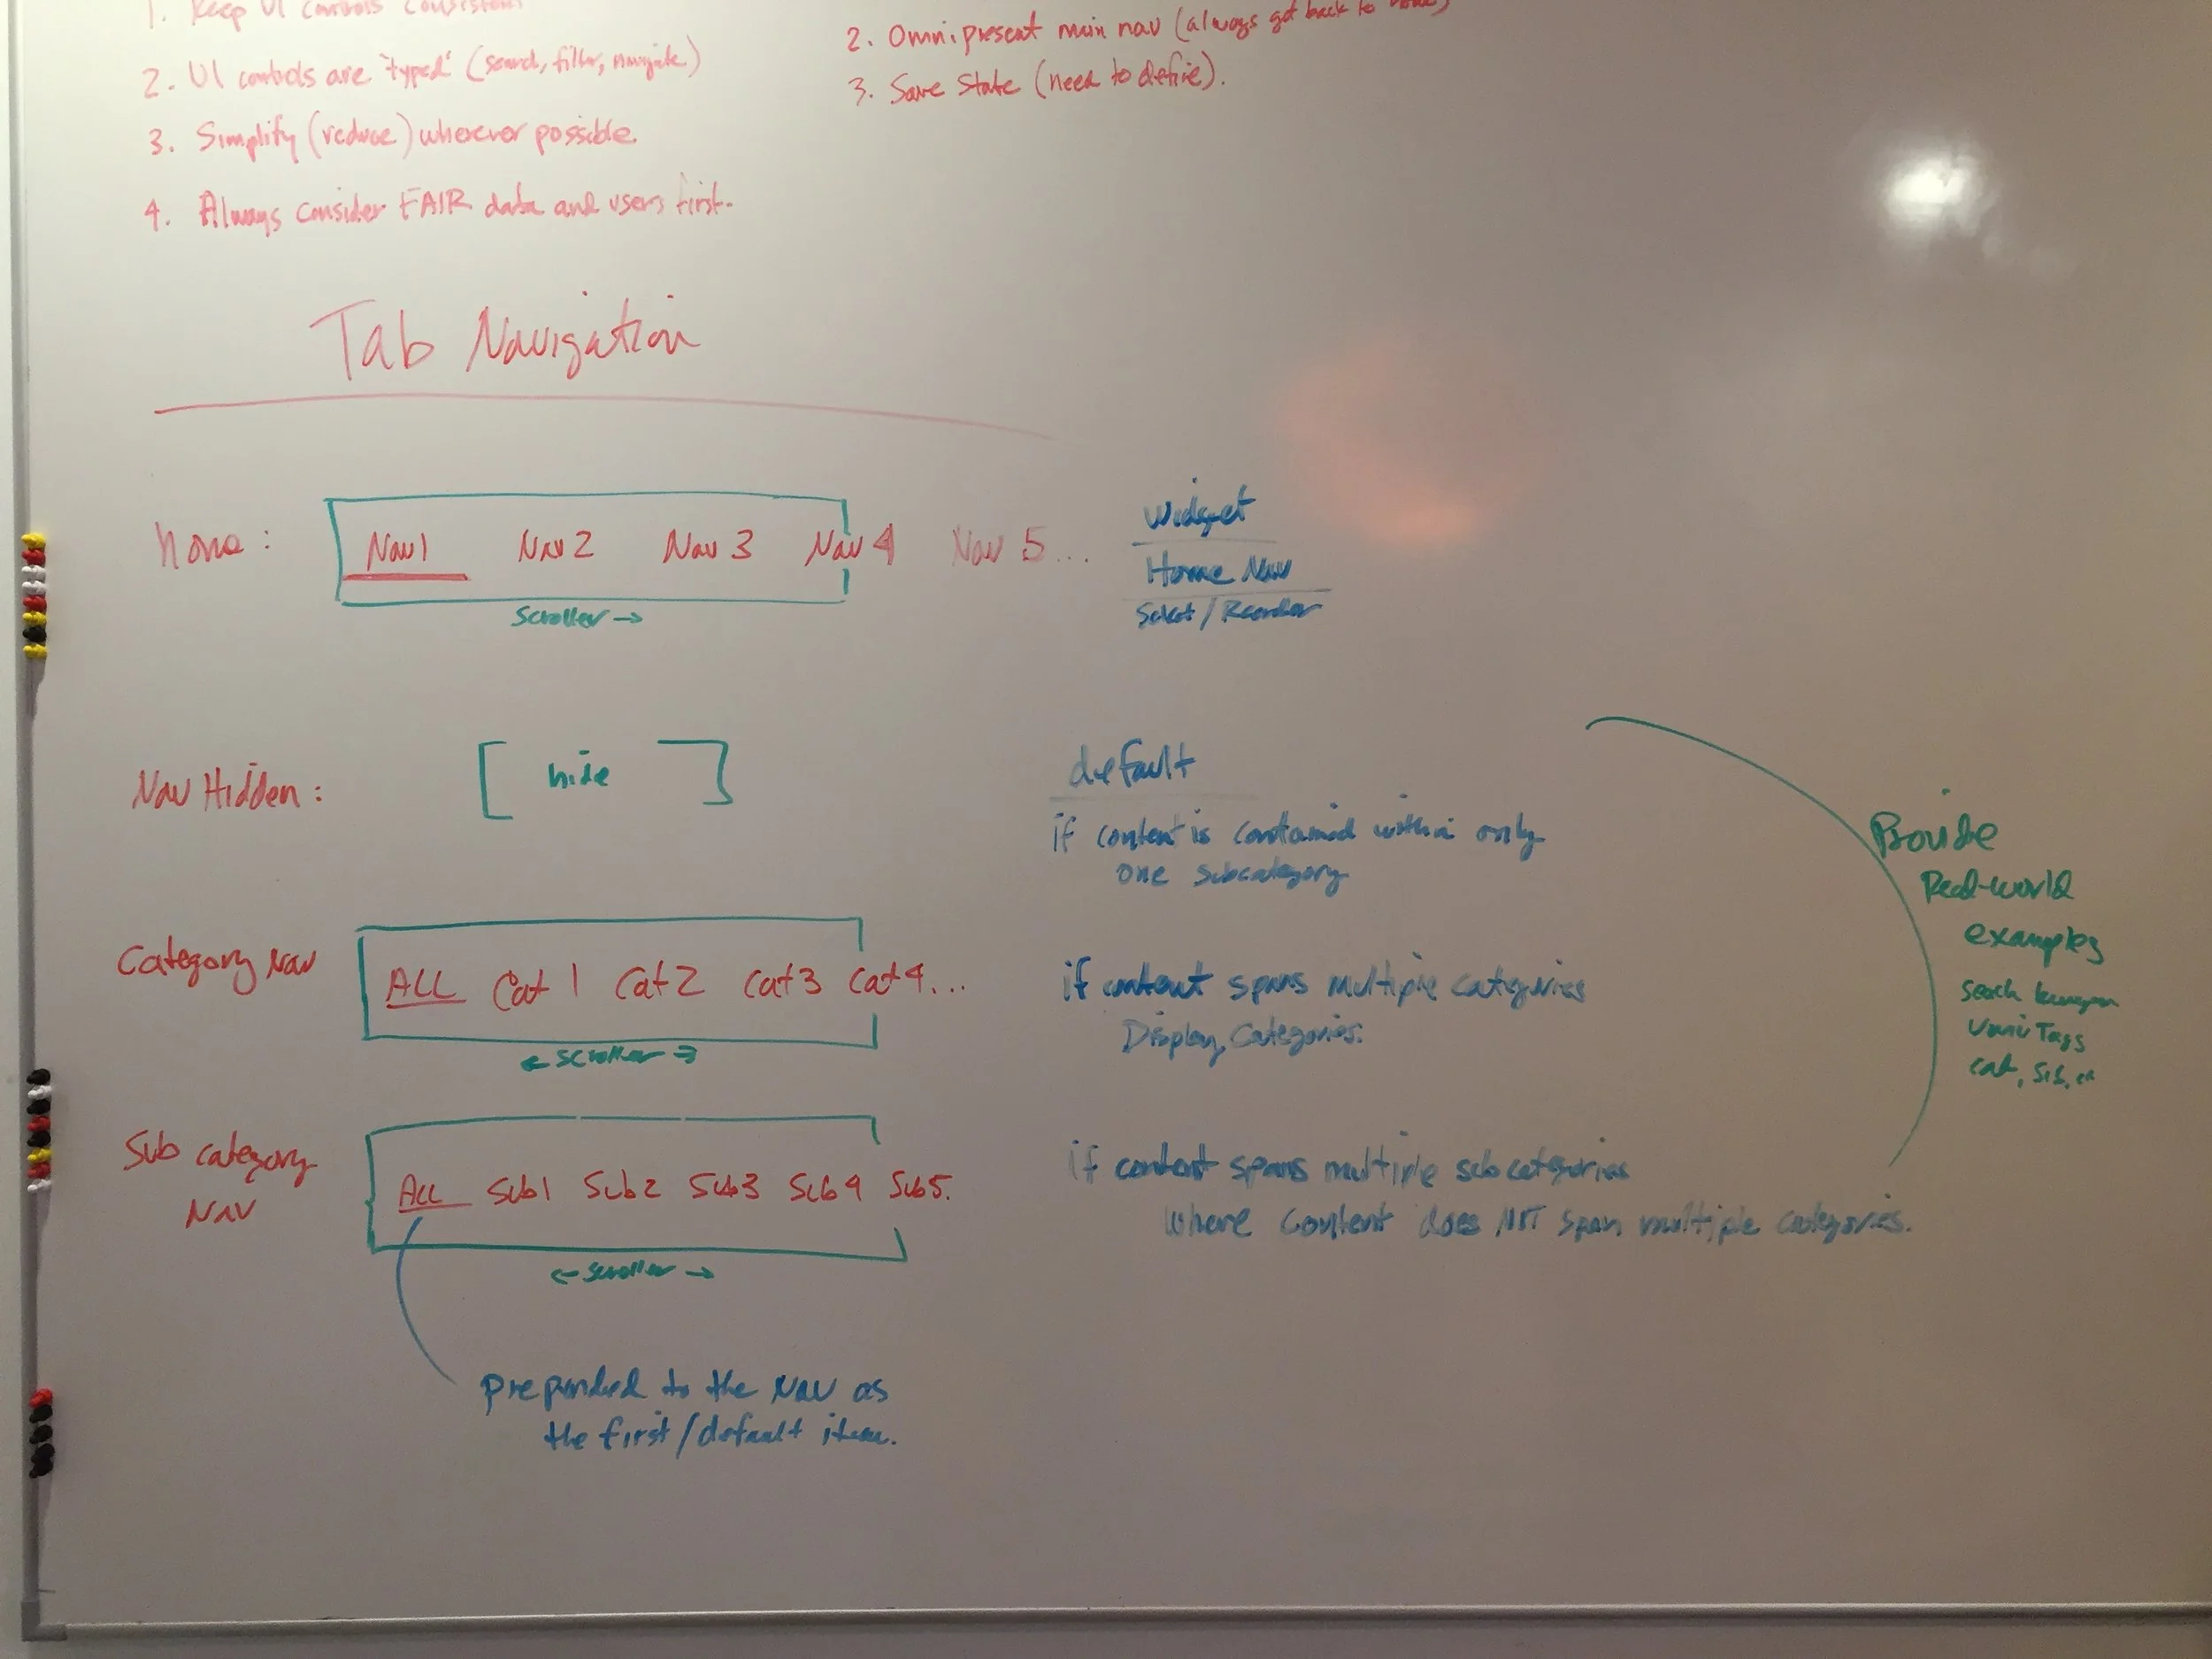 1. Keep UI controls consistent
2. UI controls are "typed" (search, filter, navigate)
3. Simplify (reduce) wherever possible.
4. Always consider FAIR data and users first.
2. Omnipresent main nav (always get back to home)
3. Save State (need to define).
Tab Navigation
home: Nav 1 Nav 2 Nav 3 Nav 4 Nav 5...
Scroller →
Widget
Home Nav
Select / Reorder
Nav Hidden: [ hide ]
default
if content is contained within only
one subcategory
Category Nav
ALL Cat 1 Cat 2 Cat 3 Cat 4...
← scroller →
if content spans multiple categories
Display Categories.
Sub category
Nav
ALL Sub1 Sub2 Sub3 Sub4 Sub5.
← scroller →
if content spans multiple subcategories
where content does NOT span multiple categories.
prepended to the Nav as
the first/default item.
Provide
Real-world
examples
Search
Tags
cat,